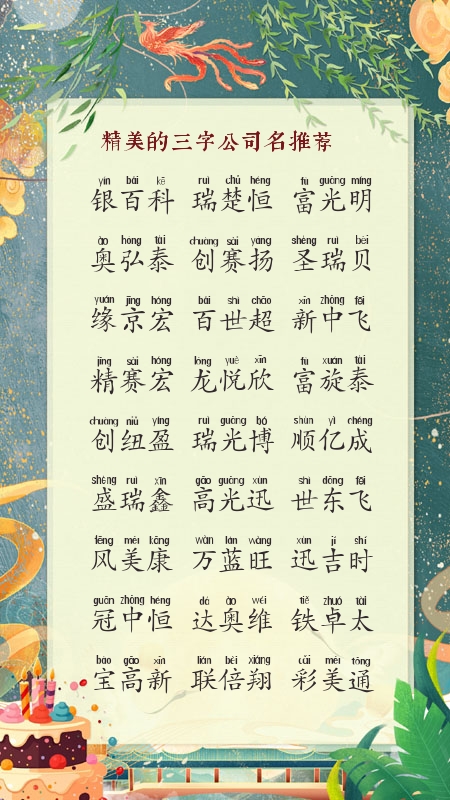 精美的三字公司名推荐
yín bǎi kē ruì chǔ héng fù guāng míng
银百科 瑞楚恒 富光明
ào hóng tài chuàng sài yáng shèng ruì bèi
奥弘泰 创赛扬 圣瑞贝
yuán jīng hóng bǎi shì chāo xīn zhōng fēi
缘京宏 百世超 新中飞
jīng sài hóng lóng yuè xīn fù xuán tài
精赛宏 龙悦欣 富旋泰
chuàng niǔ yíng ruì guāng bó shùn yì chéng
创纽盈 瑞光博 顺亿成
shèng ruì xīn gāo guāng xùn shì dōng fēi
盛瑞鑫 高光迅 世东飞
fēng měi kāng wàn lán wàng xùn jí shí
风美康 万蓝旺 迅吉时
guān zhōng héng dá ào wéi tiě zhuó tài
冠中恒 达奥维 铁卓太
bǎo gāo xīn lián bèi xiáng cǎi měi tōng
宝高新 联倍翔 彩美通